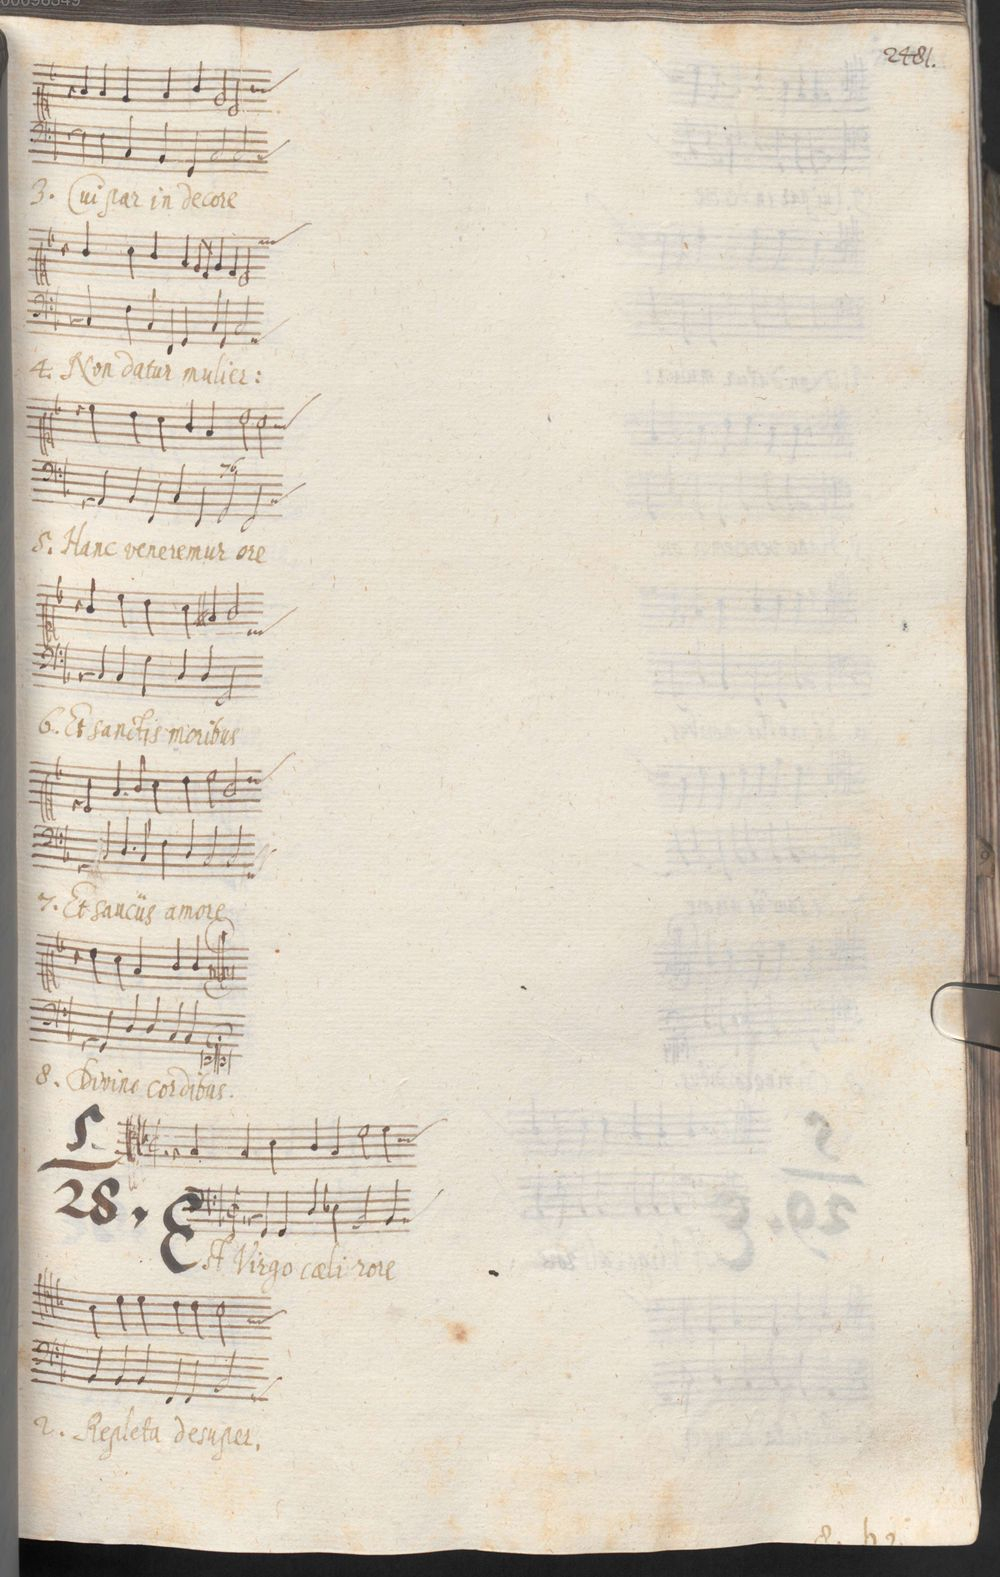 2481.
3. Cui par in decore
4. Non datur mulier:
76
5. Hanc veneremur ore
6. Et sanctis moribus
7. Et sauciis amore
8. Divino cordibus.
5.
28, Est Virgo cæli rore
2. Repleta desuper.